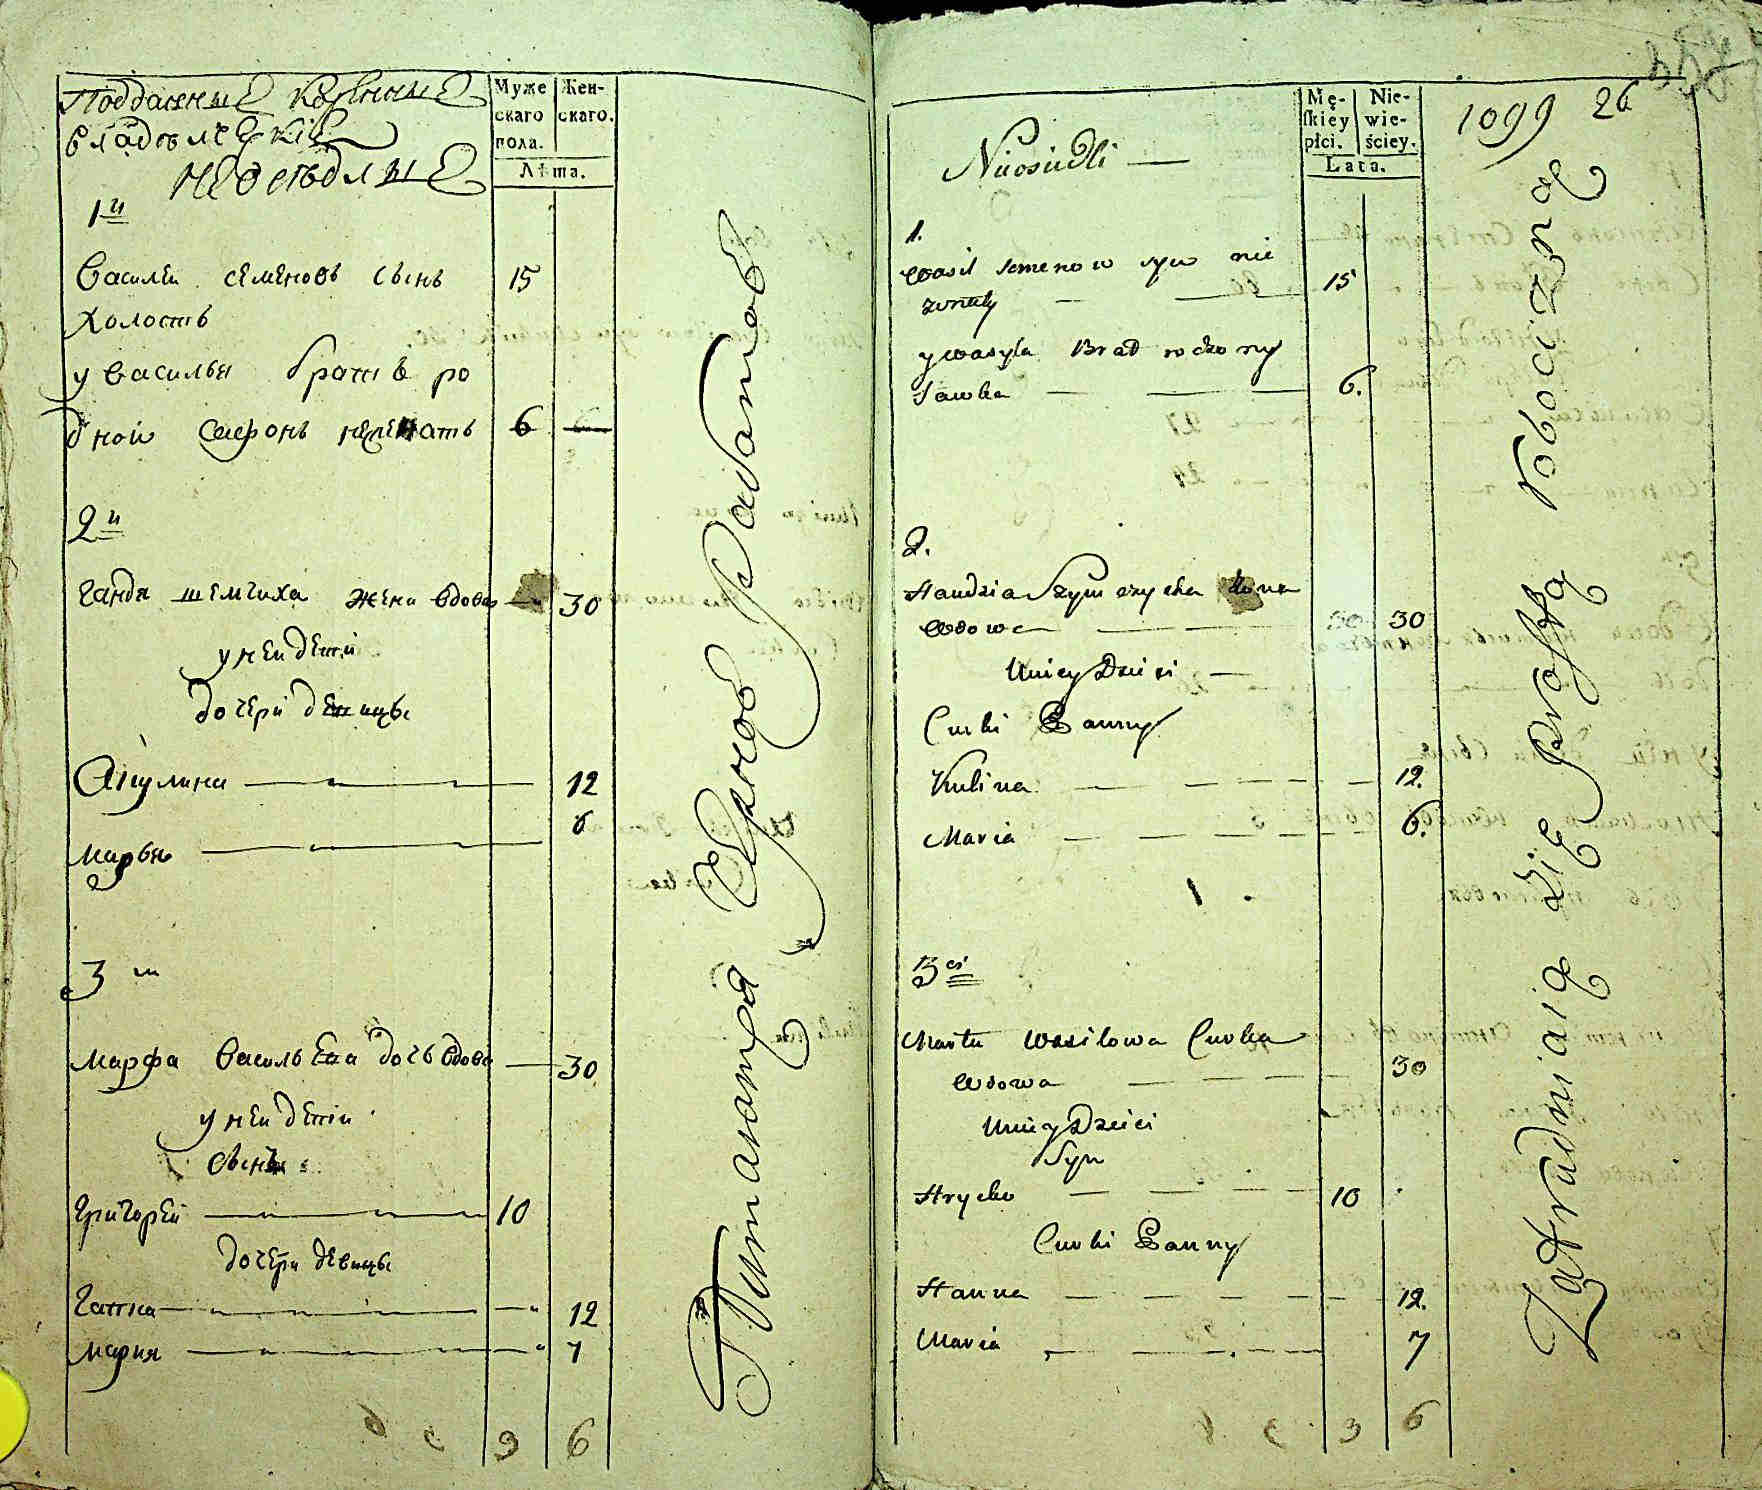 Подданные казенные
владельческие
неоселые
Муже
скаго
пола.
Жен-
скаго.
Лѣта.
1й
Василеи семеновъ сынъ 15
холостъ
у василья братъ ро
дной сафонъ 6
2й
гандя шемчиха жена вдова 30
у неи дети
дочери девицы
Акулина 12
марья 6
3
марфа василь ева дочь вдова 30
у неи дети
сынъ
григорей 10
дочери девицы
ганна 12
мария 7
3 6
Питаются Черною Работою
Nieosiedli
Mę-
ſkiey
płci.
Nie-
wie-
ściey.
Lata.
1099 26
1.
Wasil Semenow syn nie 15
zonaty
y wasyla Brat rodzony
Sawka 6.
2.
Handzia Szymczycha żona
Wdowa 30
Uniey Dzieci
Curki Panny
Kulina 12.
Maria 6.
3ci
Marta Wasilowa Curka
Wdowa 30
Uniey Dzieci
Syn
Hryćko 10
Curki Panny
Hanna 12.
Maria 7
3 6
Zatrudniaią się Prostą Robocizną